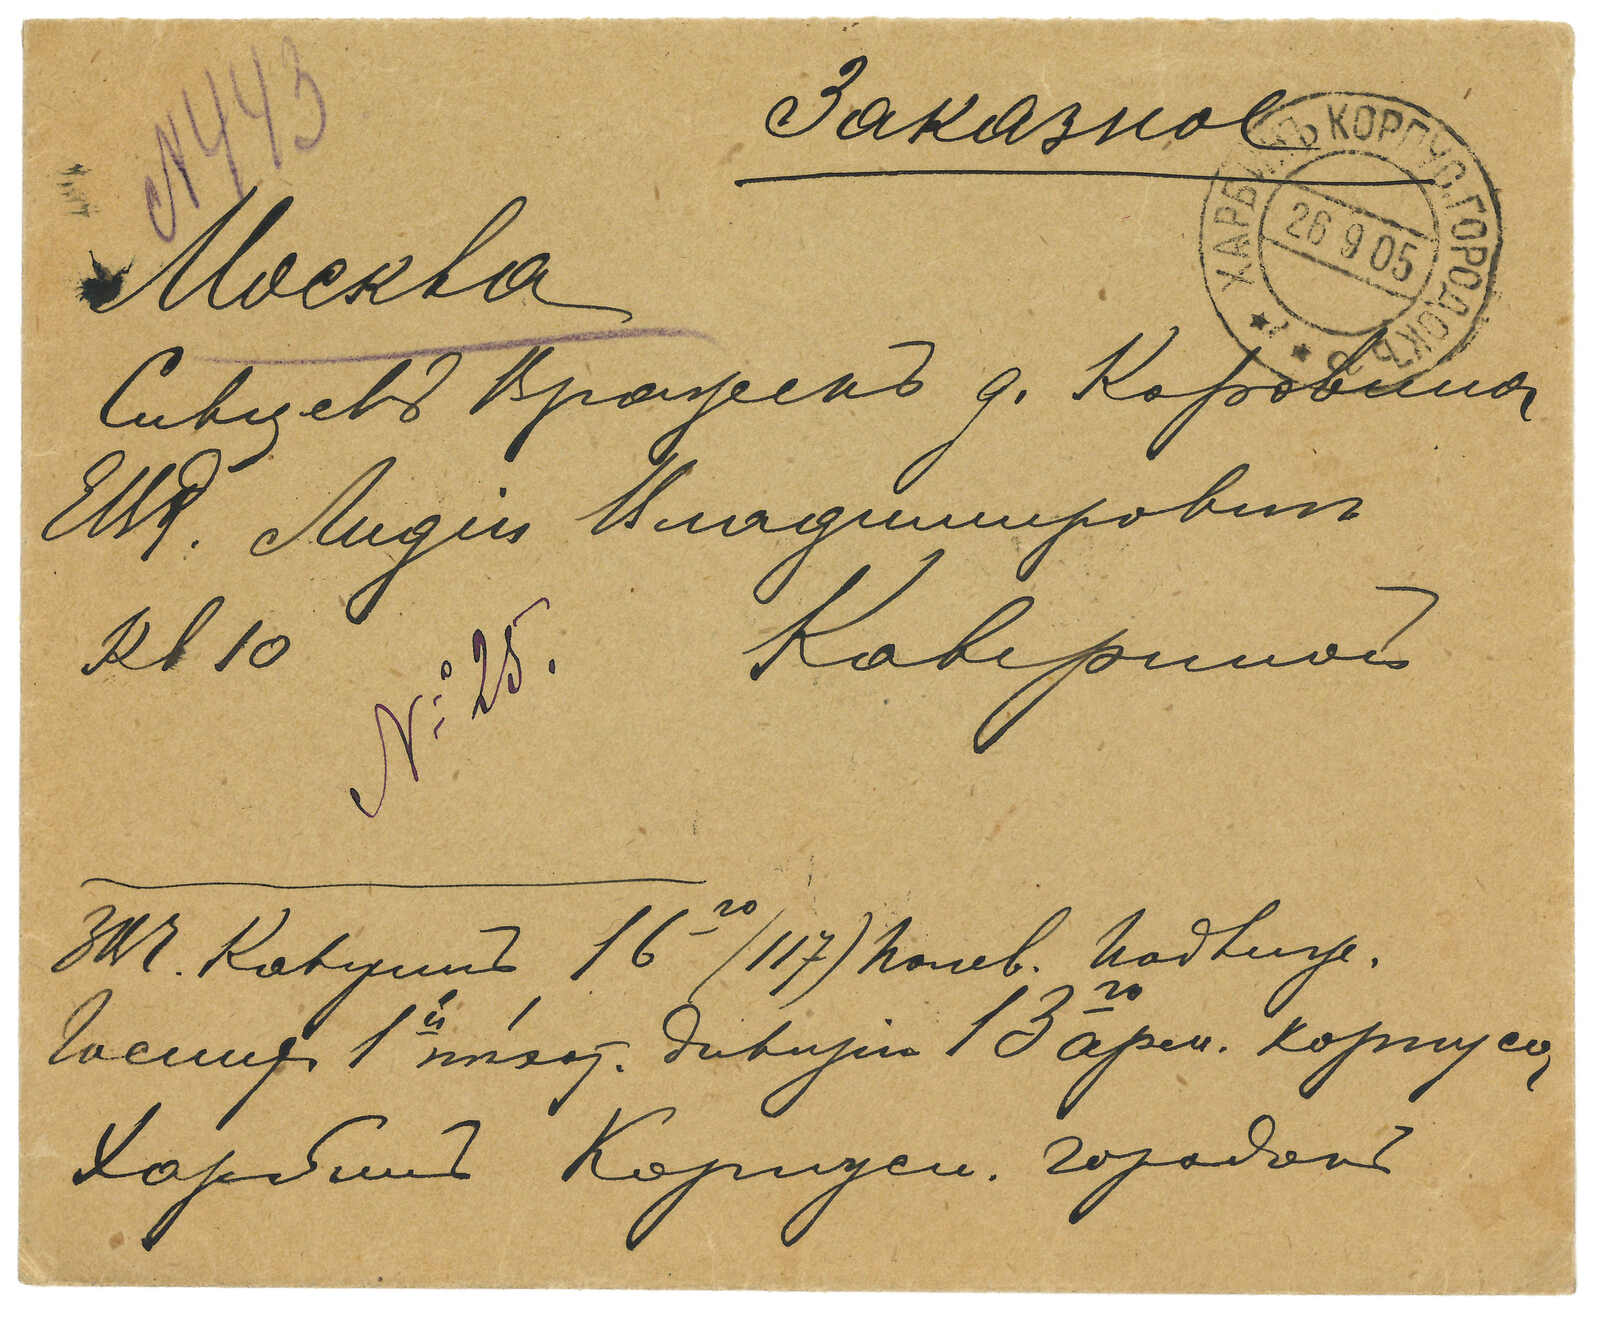 N 443
Заказное
ХАРБИНЪ КОРПУС. ГОРОДОКЪ
26 9 05
Москва
Сивцевъ Вражекъ д. Коровина
ЕВБ. Лидіи Владимировнѣ
кв 10
Кавериной
№ 25.
Каверинъ 16го /117) Полев. Подвиж.
Госпит. 1й пѣхот. дивизіи 13го арм. корпуса
Харбинъ Корпусн. городокъ